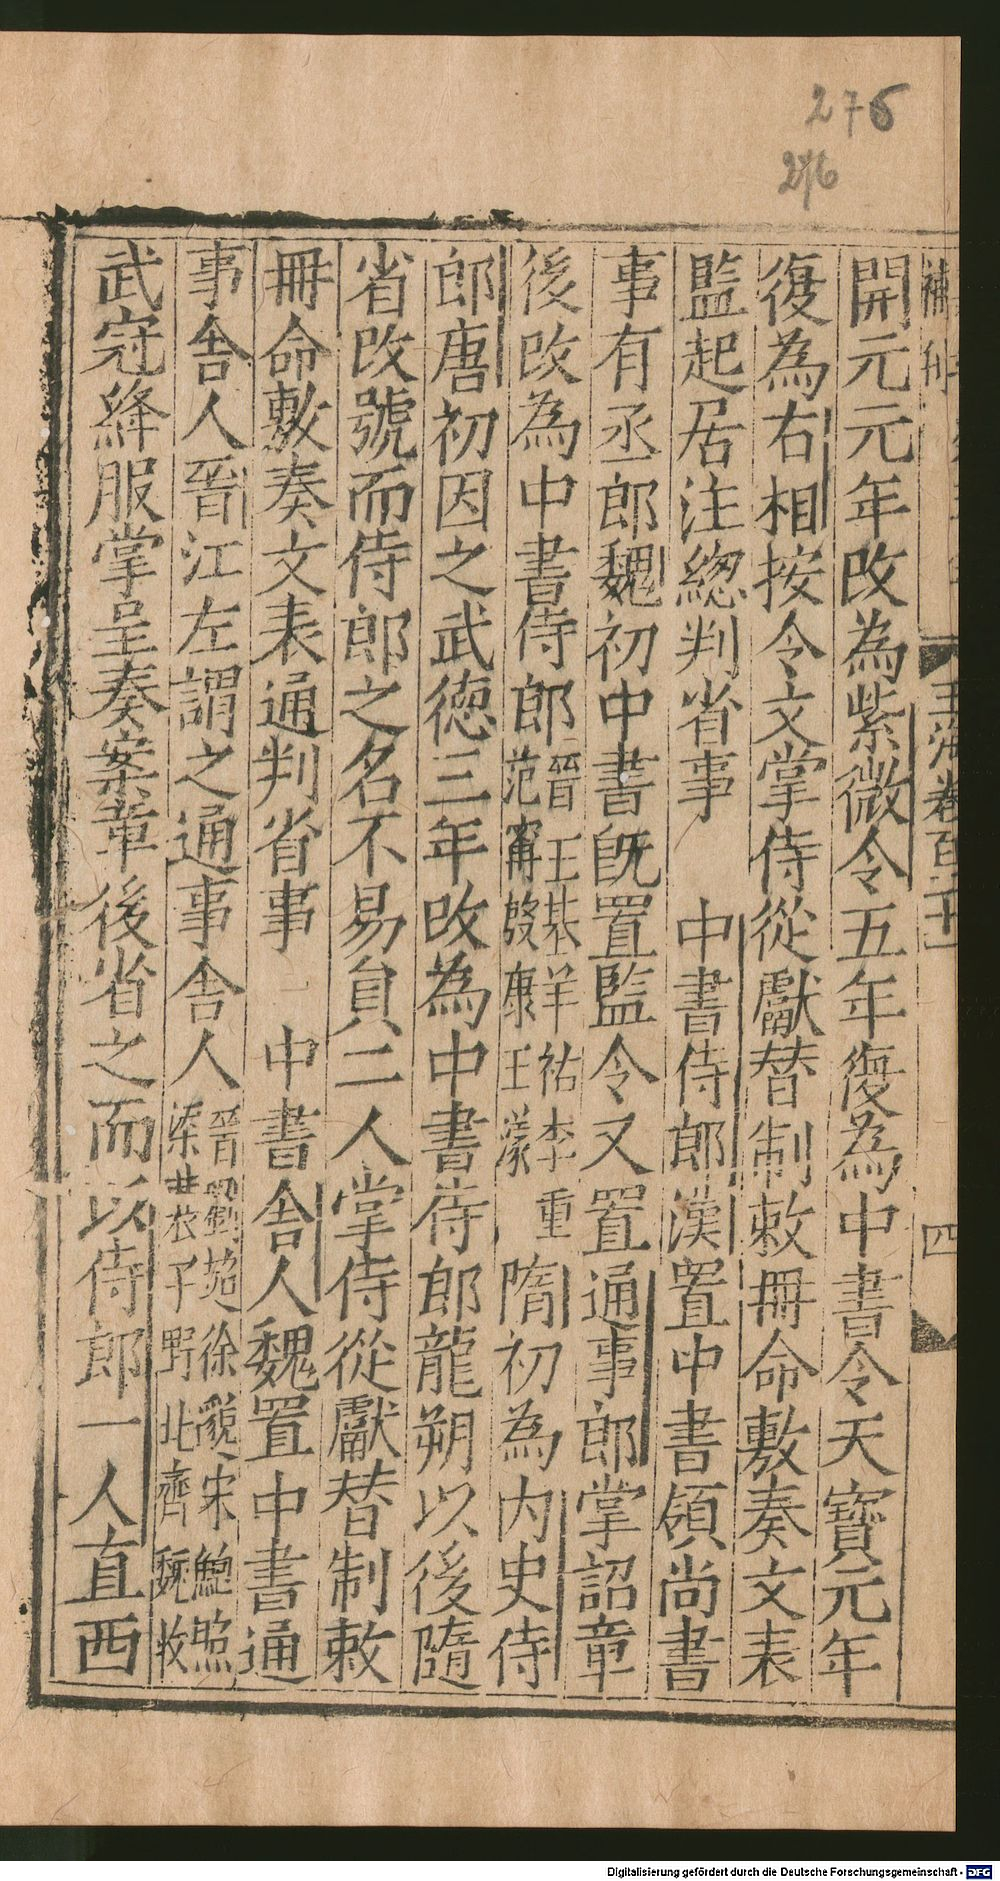 276
276
補刊
玉海卷百二十一
四
開元元年改為紫微令五年復為中書令天寶元年
復為右相按令文掌侍從獻替制敕冊命敷奏文表
監起居注緫判省事　中書侍郎漢置中書領尚書
事有丞郎魏初中書旣置監令又置通事郎掌詔章
後改為中書侍郎晉王基羊祜李重范甯嵇康王濛隋初為內史侍
郎唐初因之武德三年改為中書侍郎龍朔以後隨
省改號而侍郎之名不易員二人掌侍從獻替制敕
冊命敷奏文表通判省事　中書舍人魏置中書通
事舍人晉江左謂之通事舍人晉劉超徐邈宋鮑照梁裴子野北齊魏收
武冠絳服掌呈奏案章後省之而以侍郎一人直西
Digitalisierung gefördert durch die Deutsche Forschungsgemeinschaft - DFG